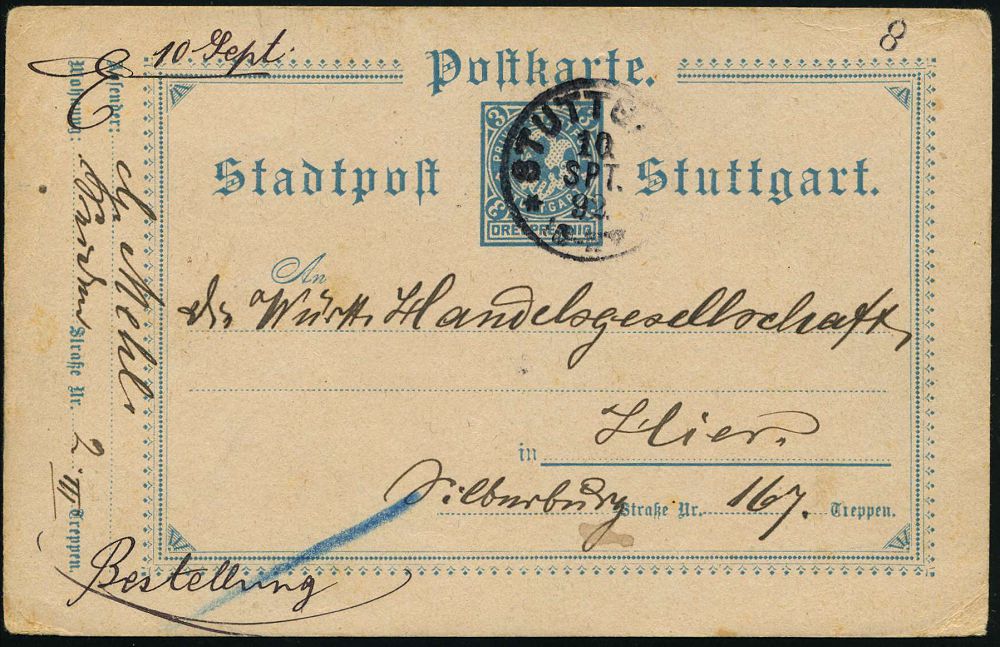 10 Sept.
8
Postkarte.
Stadtpost Stuttgart.
3 3
3
DREI PFENNIG
STUTTG.
10
SPT.
92
An
die Württ. Handelsgesellschaft,
in Hier.
Silberburg Straße Nr. 167. Treppen.
Absender: Mehl
Wohnung: Straße Nr. 2 III Treppen.
Bestellung